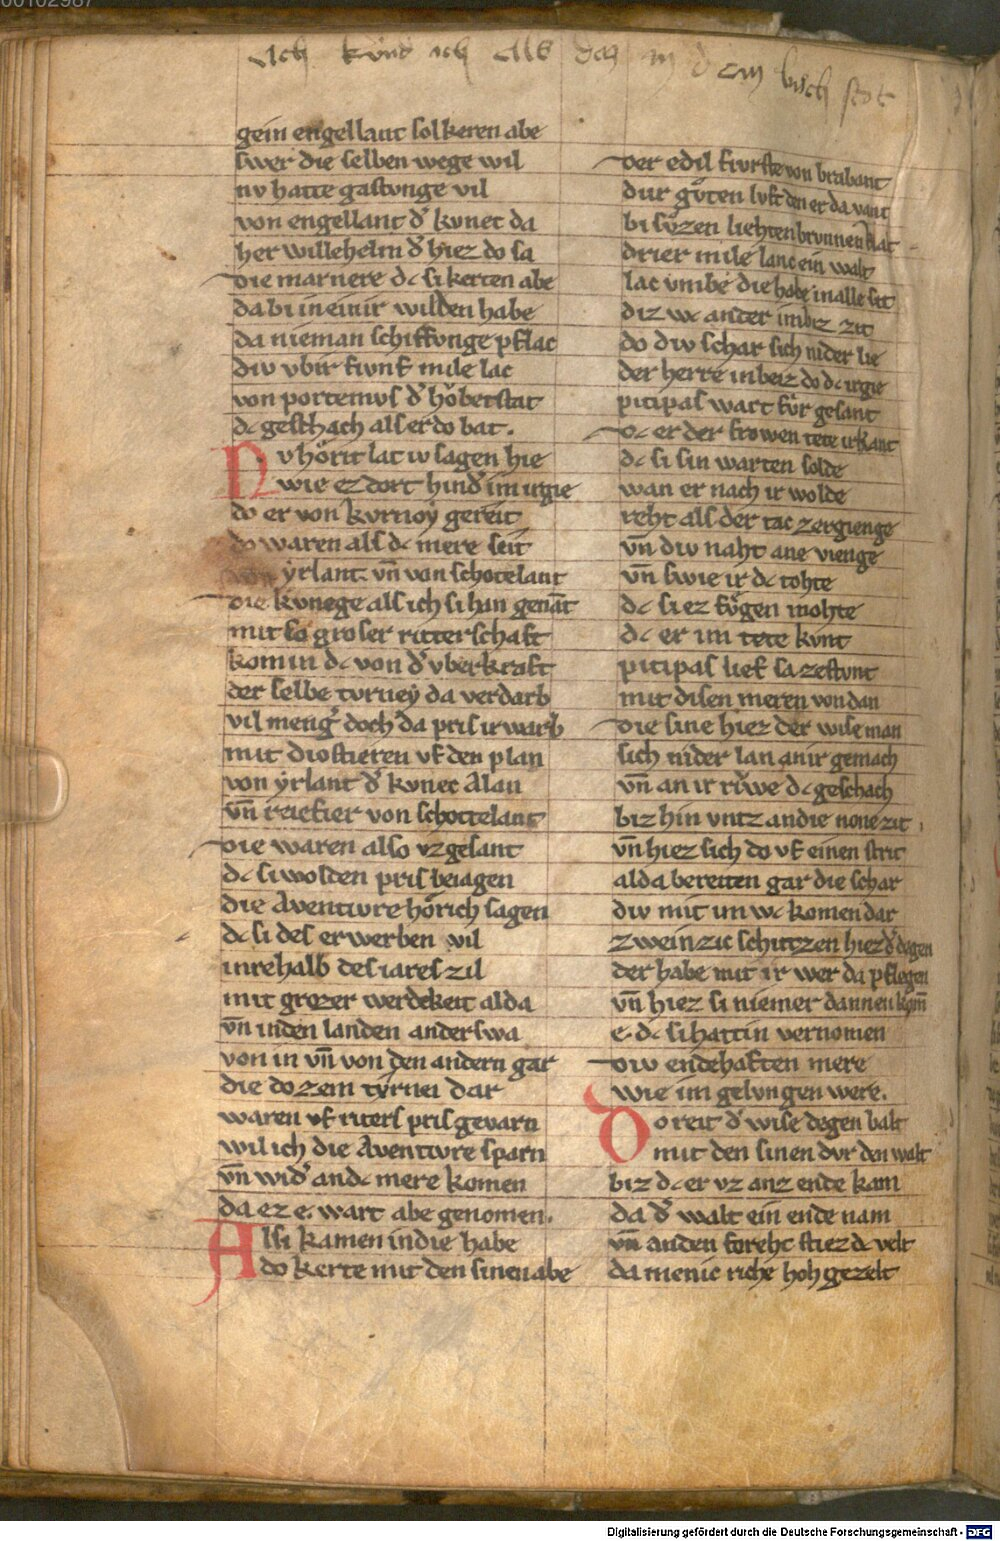 00102987
Ach kund ich als das in dem buch stot
gein engellant solkeren abe
swer die selben wege wil
nv hatte gastvnge vil
von engellant d᾽ kvnec da
her willehelm d᾽ hiez do sa
die marnere dc si kerten abe
da bi in einir wilden habe
da nieman schiffvnge pflac
div vbir fivnf mile lac
von portemvs d᾽ hobetstat
dc geschach als er do bat.
Nv hörit lat iv sagen hie
wie ez dort hind᾽ im irgie
do er von kvrnoÿ gereit
do waren als dc mere seit
von ÿrlant. vn̄ von schotelant
die kvnege als ich si han genāt
mit so groser ritterschaft
komin dc von d᾽ vberkraft
der selbe tvrneÿ da verdarb
vil meng᾽ doch da pris irwarb
mit diostieren vf den plan
von ÿrlant d᾽ kvnec Alan
vn̄ reiefier von schottelant
die waren also vzgesant
dc si wolden pris beiagen
die Aventivre hörich sagen
dc si des erwerben wil
inrehalb des iares zil
mit grozer werdekeit alda
vn̄ inden landen anderswa
von in vn̄ von den andern gar
die do zem tÿrnei dar
waren vf riters pris gevarn
wil ich die Aventivre sparn
vn̄ wid᾽ an dc mere komen
da ez e. wart abe genomen.
Als si kamen in die habe
do kerte mit den sinen abe
der edil fivrste von brabant
dur gůten lvft den er da vant
bi sůzen liehten brvnnen klat
drier mile lanc ein walt
lac vmbe die habe in alle sit
diz wc ander imbiz zit
do div schar sich nider lie
der herre inbeiz do dc irgie
pitipas wart fůr gesant
dc er der frowen tete irkant
dc si sin warten solde
wan er nach ir wolde
reht als der tac zergienge
vn̄ div naht ane vienge
vn̄ swie ir dc tohte
dc si ez fůgen mohte
dc er im tete kvnt
pitipas lief sa zestvnt
mit disen meren von dan
die sine hiez der wise man
sich nider lan an ir gemach
vn̄ an ir růwe dc geschach
biz hin vntz an die none zit
vn̄ hiez sich do vf einen strit
alda bereiten gar die schar
div mit im wc komen dar
zweinzic schitzen hiez d᾽ degen
der habe mit ir wer da pflegen
vn̄ hiez si niemer dannen kom̄
e. dc si hattin vernomen
div endehaften mere
wie im gelvngen were.
Do reit d᾽ wise degen balt
mit den sinen dvr den walt
biz dc er vz anz ende kam
da d᾽ walt ein ende nam
vn̄ anden foreht stiez dc velt
da menic riche hoh gezelt
Digitalisierung gefördert durch die Deutsche Forschungsgemeinschaft - DFG